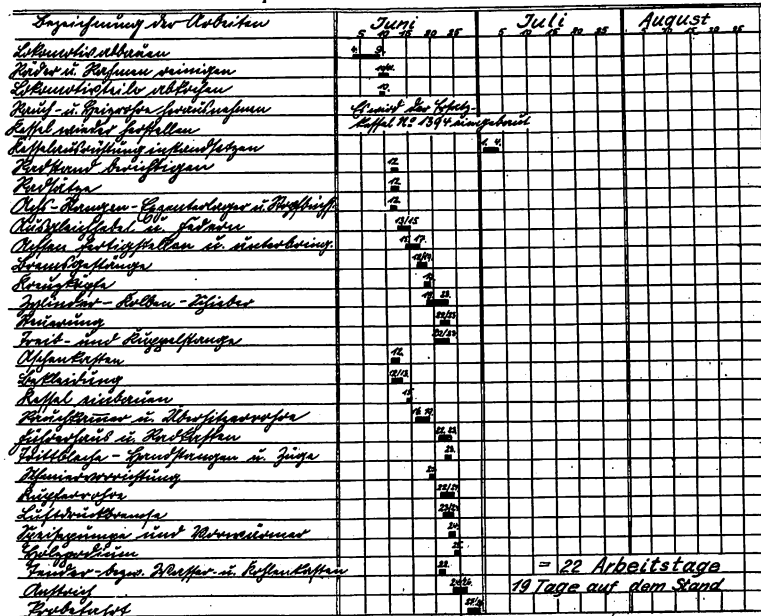 Bezeichnung der Arbeiten Juni Juli August
5 10 15 20 25 5 10 15 20 25 5 10 15 20 25
Lokomotivabbauen 4. 9.
Räder u. Rahmen reinigen
Lokomotivteile abkochen 10.
Rauch- u. Heizrohre herausnehmen Es wird der Ersatz-
Kessel wieder herstellen kessel № 1394 eingebaut
Kesselausrüstung instandsetzen 1. 4.
Radstand berichtigen 12.
Radsätze 12.
Achs-Stangen-Exzenterlager u. 12.
Ausgleichhebel u. Federn 13/15.
Achsen fertigstellen u. unterbring. 15. 17.
Bremsgestänge
Kreuzköpfe
Zylinder-Kolben-Schieber 19. 23.
Steuerung 22/23.
Treib- und Kuppelstange 22/23.
Aschenkasten 12.
Bekleidung 12/13.
Kessel einbauen 15.
Rauchkammer u. Überhitzerrohre
Führerhaus u. Radkasten 22. 23.
Trittbleche-Handstangen u. Züge 23.
Schmiervorrichtung 20.
Kupferrohre
Luftdruckbremse
Speisepumpe und Vorwärmer 24.
25.
Tender- bezw. Wasser- u. Kohlenkasten 22. = 22 Arbeitstage
Anstrich 19 Tage auf dem Stand
Probefahrt